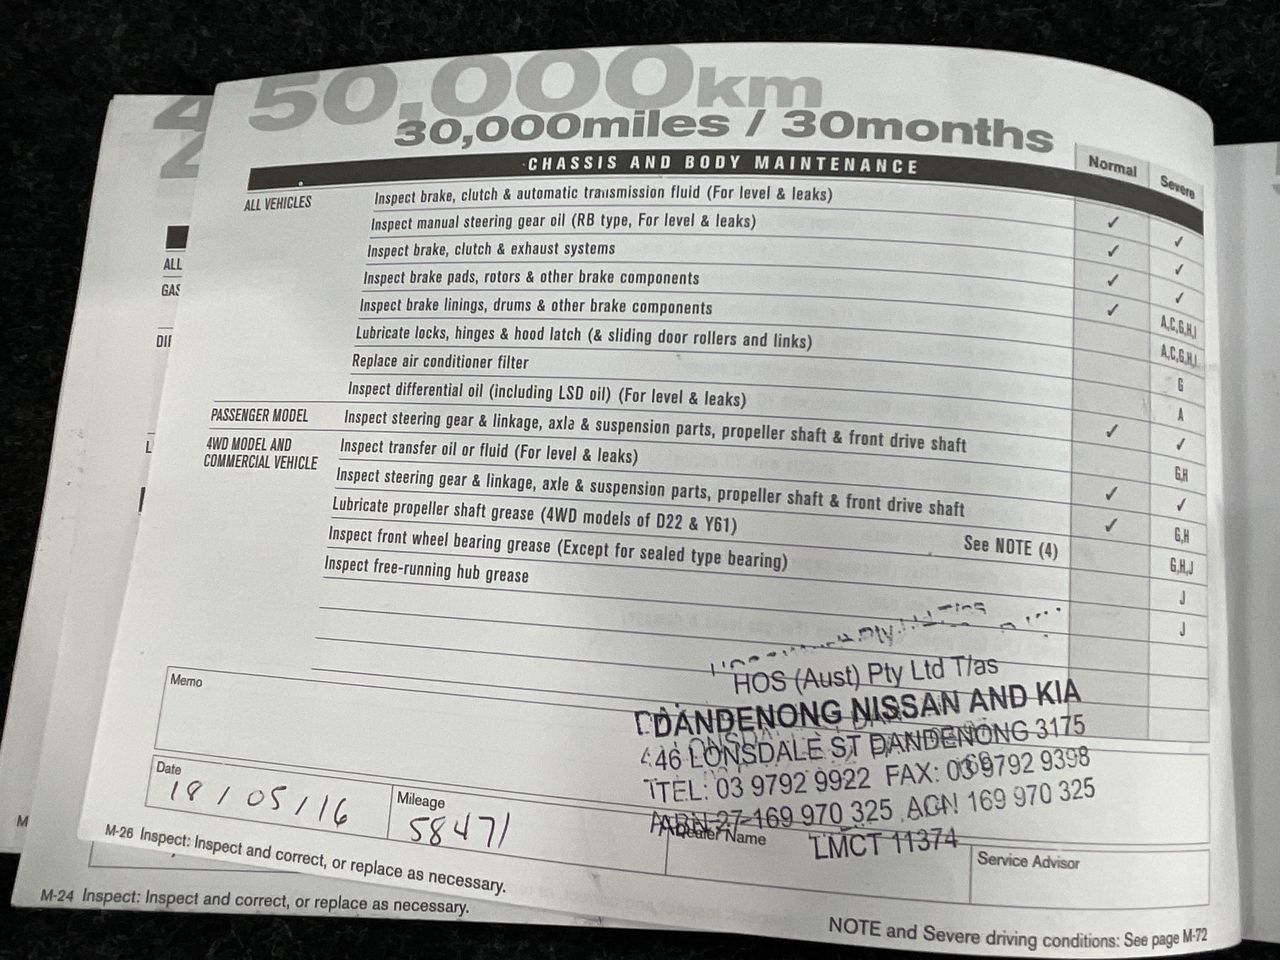 50,000km
30,000miles / 30months
Normal
Severe
CHASSIS AND BODY MAINTENANCE
ALL VEHICLES
Inspect brake, clutch & automatic transmission fluid (For level & leaks) ✓ ✓
Inspect manual steering gear oil (RB type, For level & leaks) ✓ ✓
Inspect brake, clutch & exhaust systems ✓ ✓
Inspect brake pads, rotors & other brake components ✓ A,C,G,H,I
Inspect brake linings, drums & other brake components A,C,G,H,I
Lubricate locks, hinges & hood latch (& sliding door rollers and links) G
Replace air conditioner filter A
Inspect differential oil (including LSD oil) (For level & leaks) ✓ ✓
PASSENGER MODEL
Inspect steering gear & linkage, axla & suspension parts, propeller shaft & front drive shaft G,H
4WD MODEL AND
COMMERCIAL VEHICLE
Inspect transfer oil or fluid (For level & leaks) ✓ ✓
Inspect steering gear & linkage, axle & suspension parts, propeller shaft & front drive shaft ✓ G,H
Lubricate propeller shaft grease (4WD models of D22 & Y61) See NOTE (4) G,H,J
Inspect front wheel bearing grease (Except for sealed type bearing) J
Inspect free-running hub grease J
HOS (Aust) Pty Ltd T/as
DANDENONG NISSAN AND KIA
46 LONSDALE ST DANDENONG 3175
TEL: 03 9792 9922 FAX: 03 9792 9398
ABN 27 169 970 325 ACN 169 970 325
LMCT 11374
Memo
Date
18/05/16
Mileage
58471
Dealer Name
Service Advisor
M-26 Inspect: Inspect and correct, or replace as necessary.
M-24 Inspect: Inspect and correct, or replace as necessary.
NOTE and Severe driving conditions: See page M-72
ALL